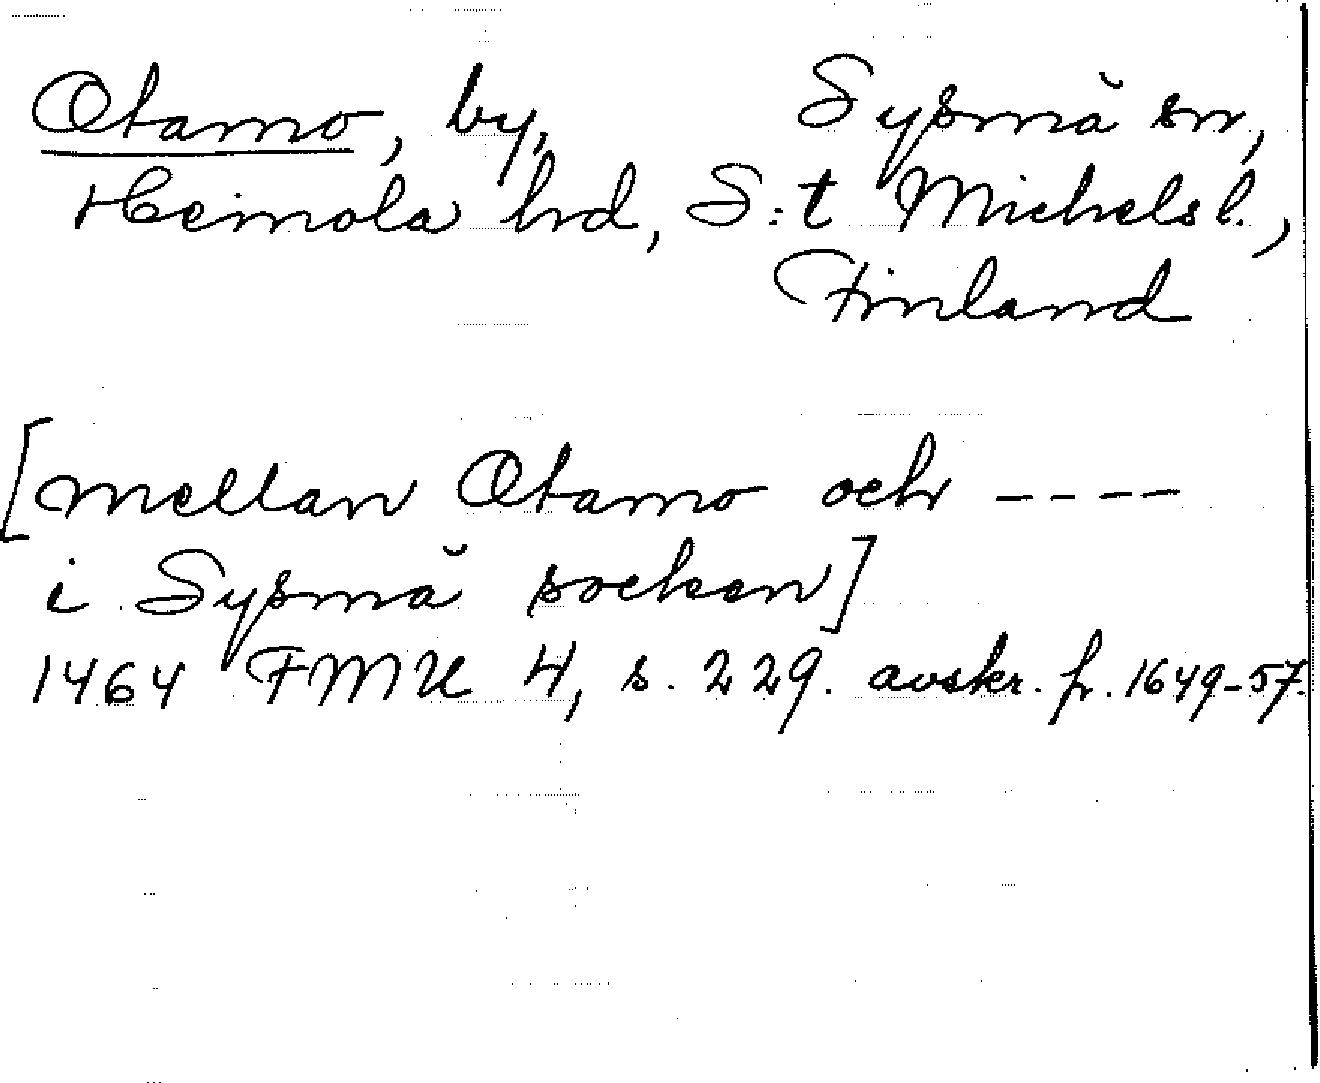 Otamo, by, Sysmä sn,
Heinola hd, S:t Michels l.,
Finland
[mellan Otamo och ----
i Sysmä socken]
1464 FMU 4, s. 229. avskr. fr. 1649-57.